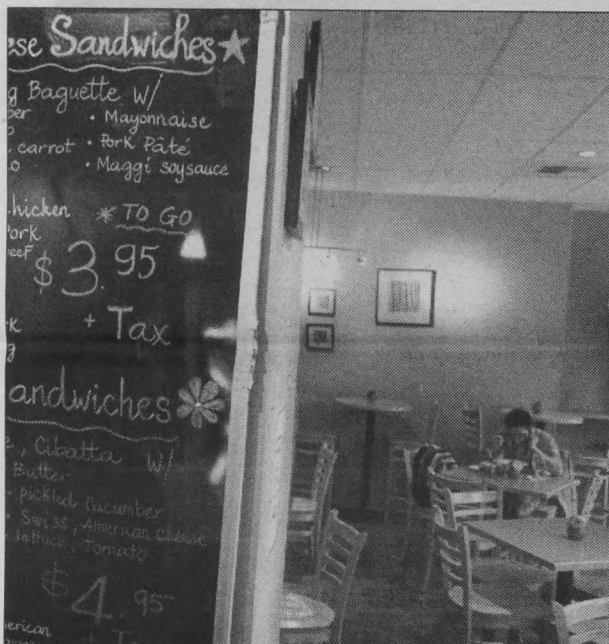 ese Sandwiches
g Baguette W/
• Mayonnaise
• Pork Pâté
carrot • Maggi soysauce
hicken * TO GO
Pork
eef
$3.95
+ Tax
andwiches
, Cibatta W/
Butter
• pickled Cucumber
• Swiss, American Cheese
Tomato
$4.95
erican